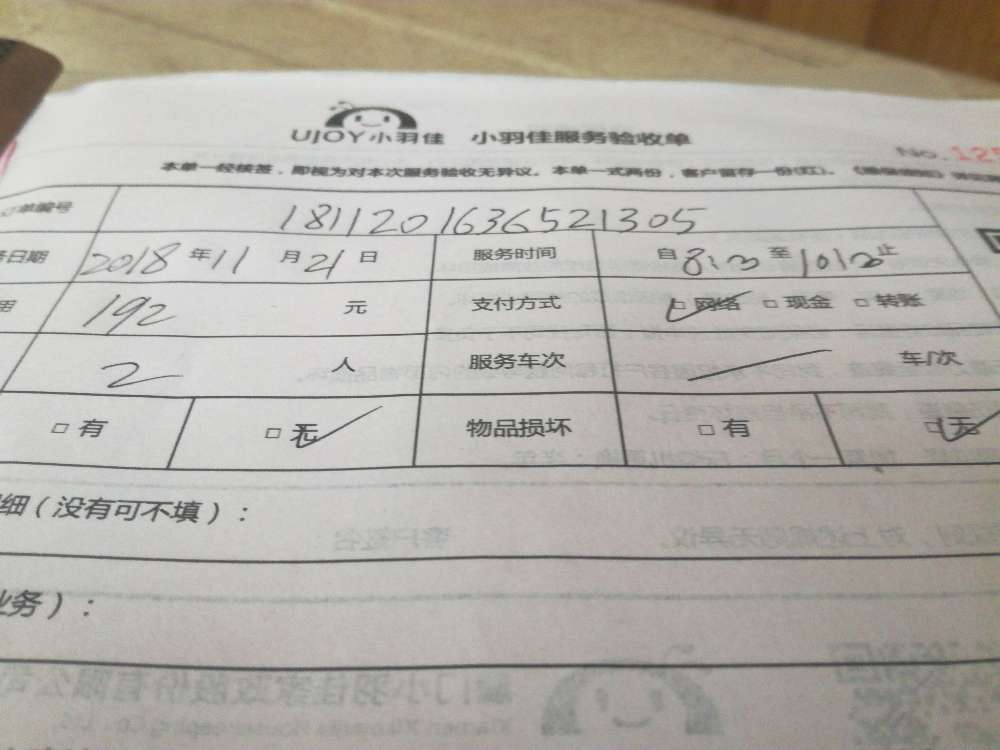 UJOY小羽佳 小羽佳服务验收单
No.125
本单一经核签，即视为对本次服务验收无异议。本单一式两份，客户留存一份(红)。
订单编号 1811201636521305
务日期 2018年11月21日 服务时间 自8:30至10:30止
用 192 元 支付方式 □网络 □现金 □转账
2 人 服务车次 车/次
□有 □无 物品损坏 □有 □无
细（没有可不填）：
业务）：